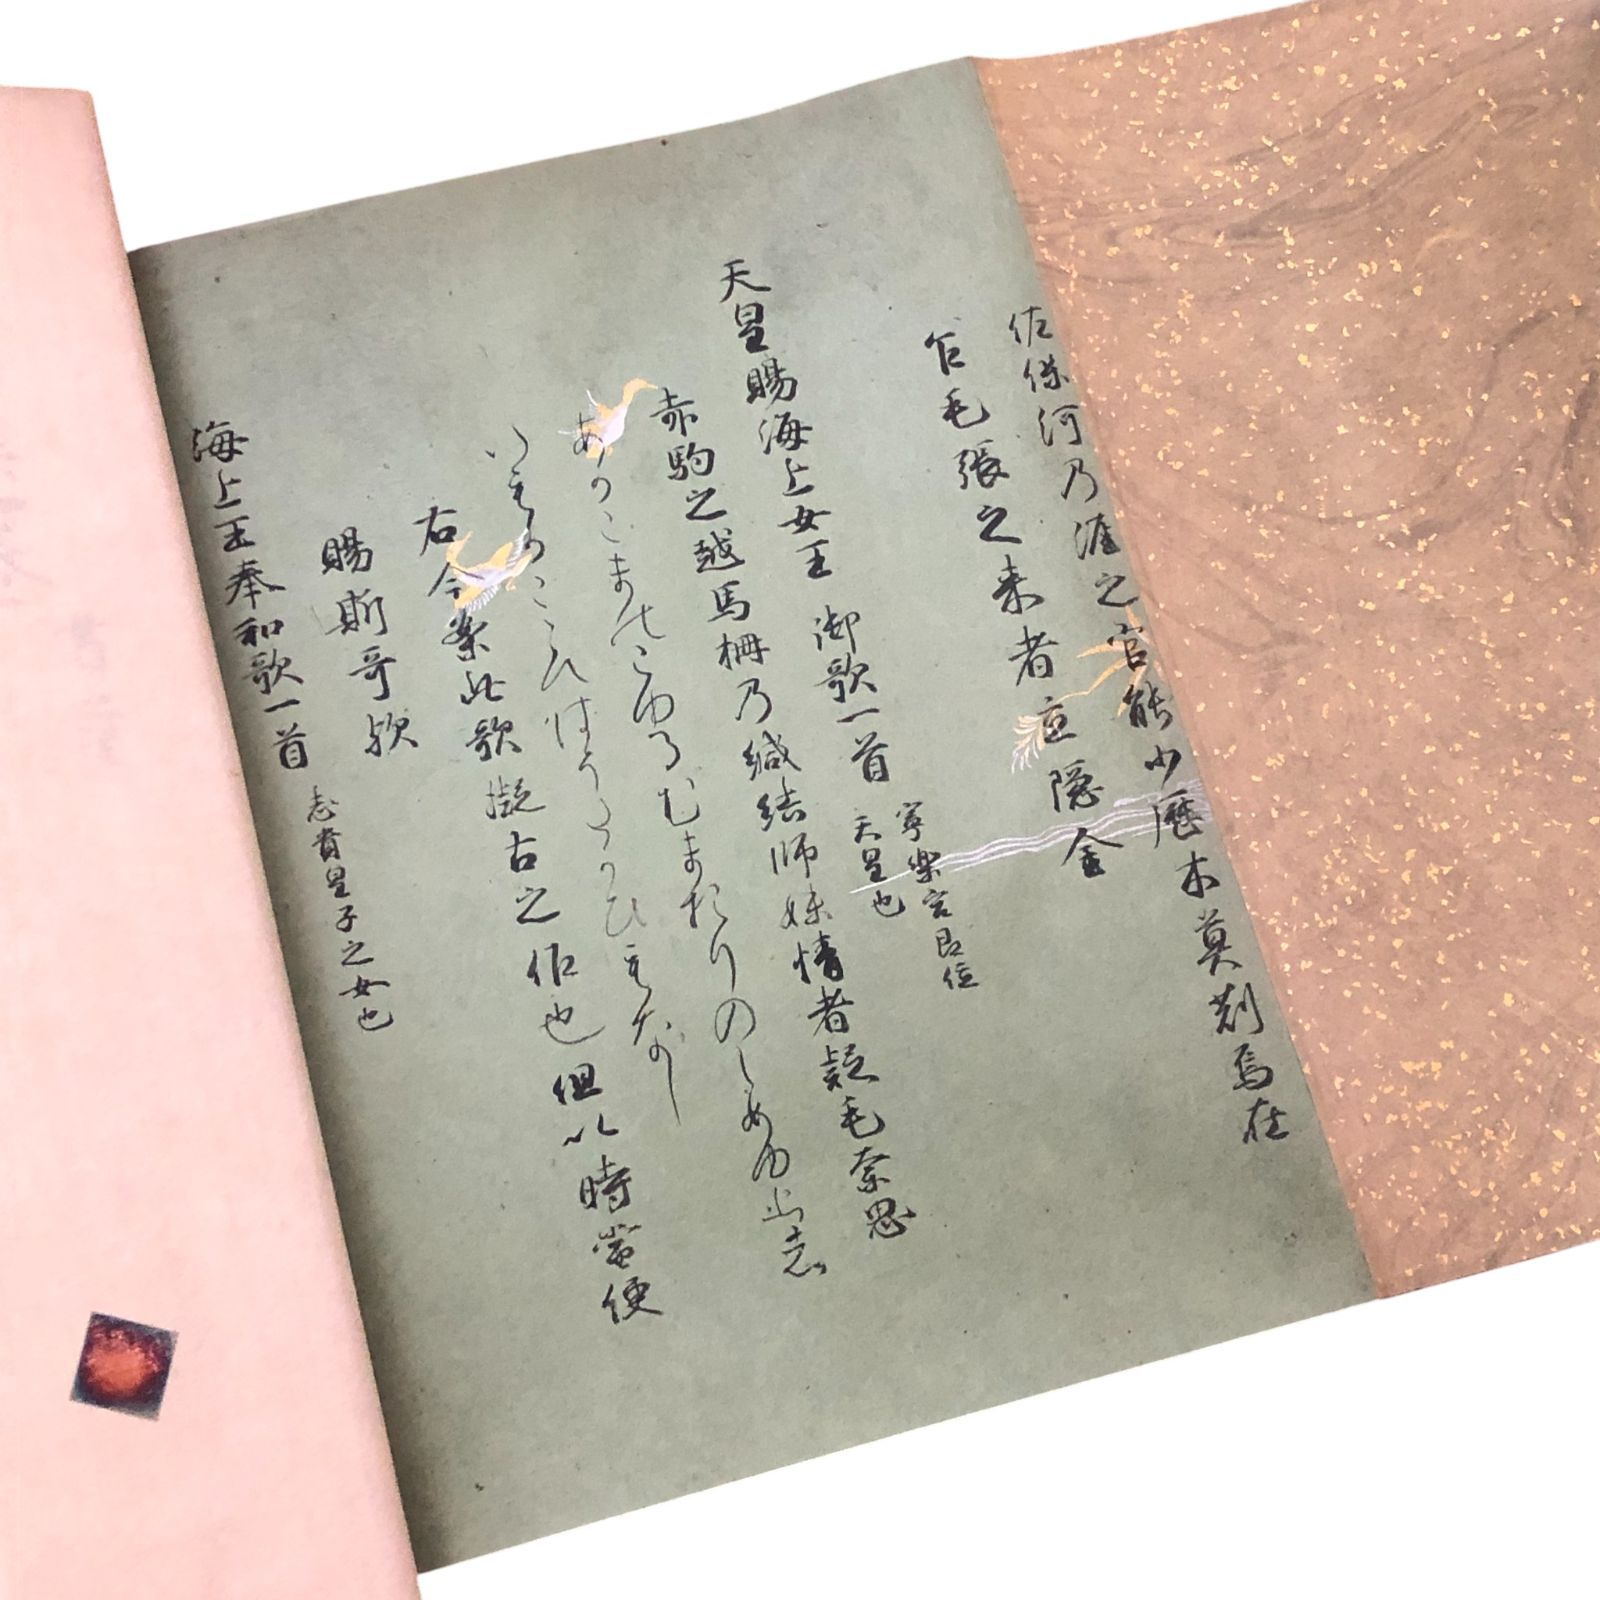 佐保河乃涯之官能少歴木莫苅焉在
乍毛張之来者立隠金
天皇賜海上女王御歌一首 寧樂宮即位
天皇也
赤駒之越馬柵乃緘結師妹情者疑毛奈思
あかこまのこゆるむまおりのしめゆひし
いもかこゝろはうたかひもなし
右今案此歌擬古之作也但以時當便
賜斯哥歟
海上王奉和歌一首 志貴皇子之女也